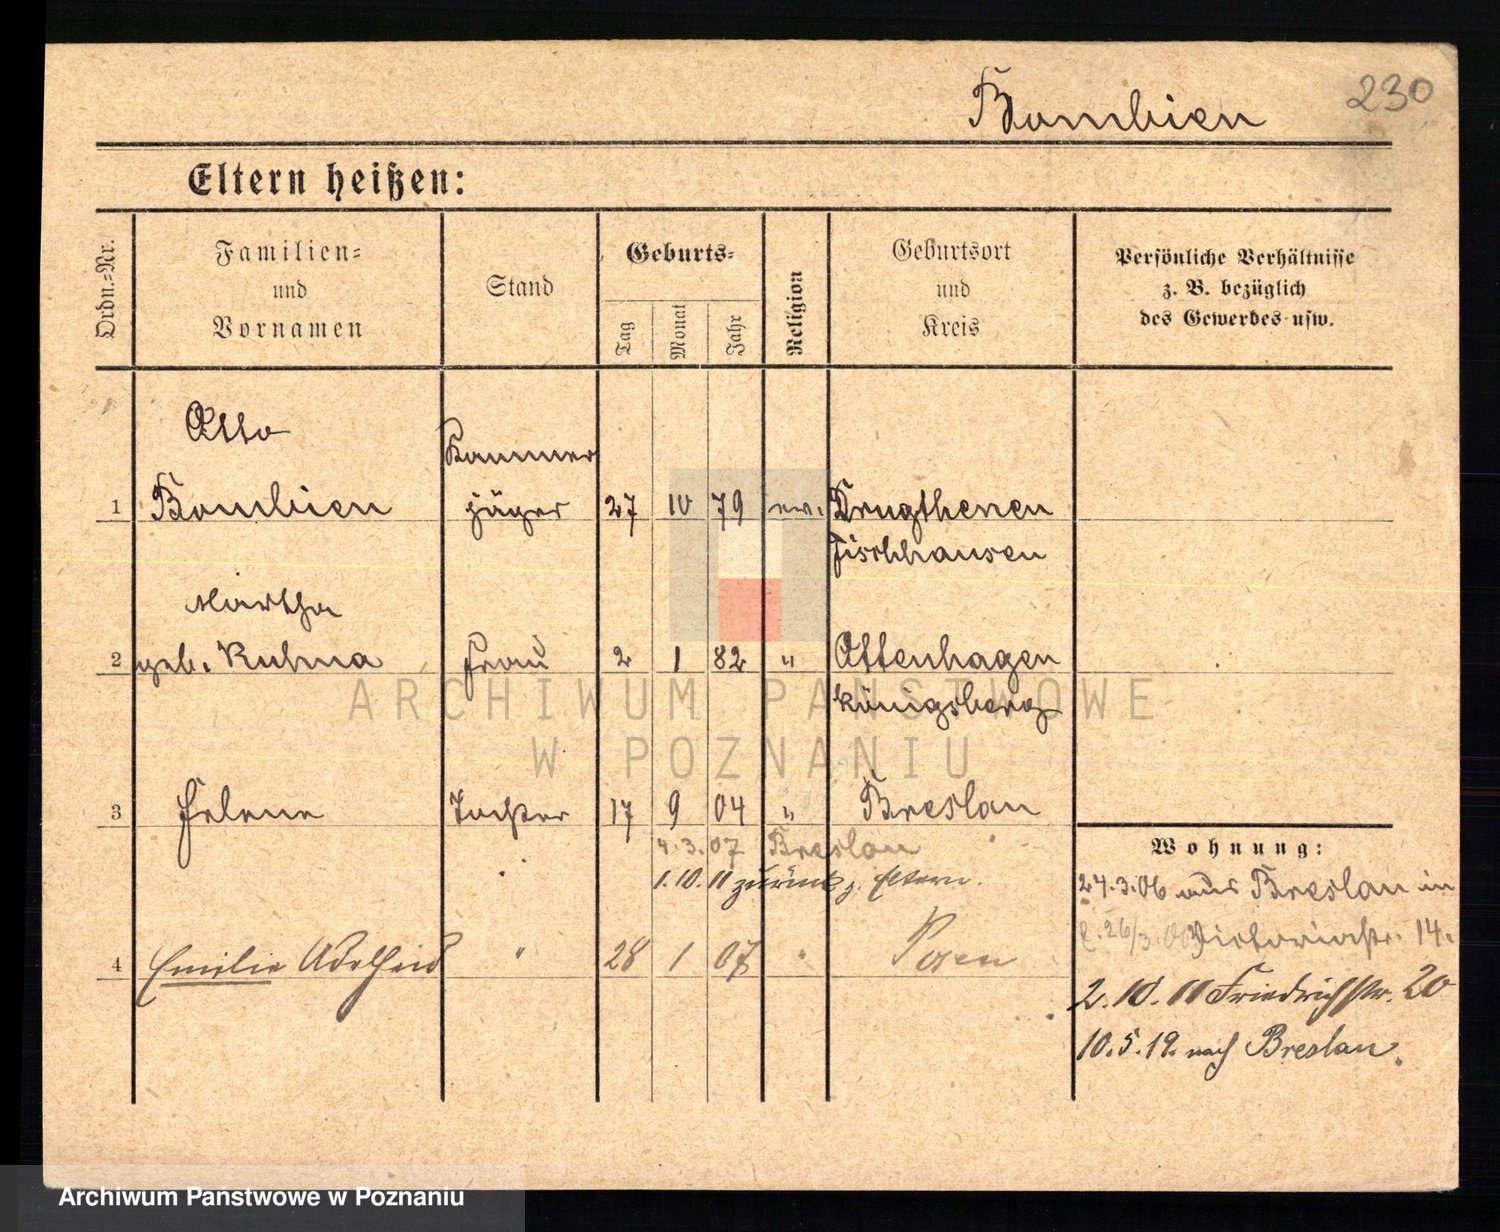 Bombien
230
Eltern heißen:
Ordn.-Nr.
Familien-
und
Vornamen
Stand
Geburts-
Tag
Monat
Jahr
Religion
Geburtsort
und
Kreis
Persönliche Verhältnisse
z. B. bezüglich
des Gewerbes usw.
Otto
Kammer
1 Bombien jäger 27 10 79 ev. Drugthenen
Fischhausen
Martha
2 geb. Kuhma Frau 2 1 82 " Ottenhagen
Königsberg
3 Helene Tochter 17 9 04 " Breslau
4.3.07 Breslau
1.10.11 zurück z. Eltern.
4 Emilie Adelheid " 28 1 07 " Posen
Wohnung:
24.3.06 aus Breslau in
26/3.06 Victoriastr. 14.
2.10.11 Friedrichstr. 20
10.5.19. nach Breslau.
ARCHIWUM PAŃSTWOWE
W POZNANIU
Archiwum Państwowe w Poznaniu